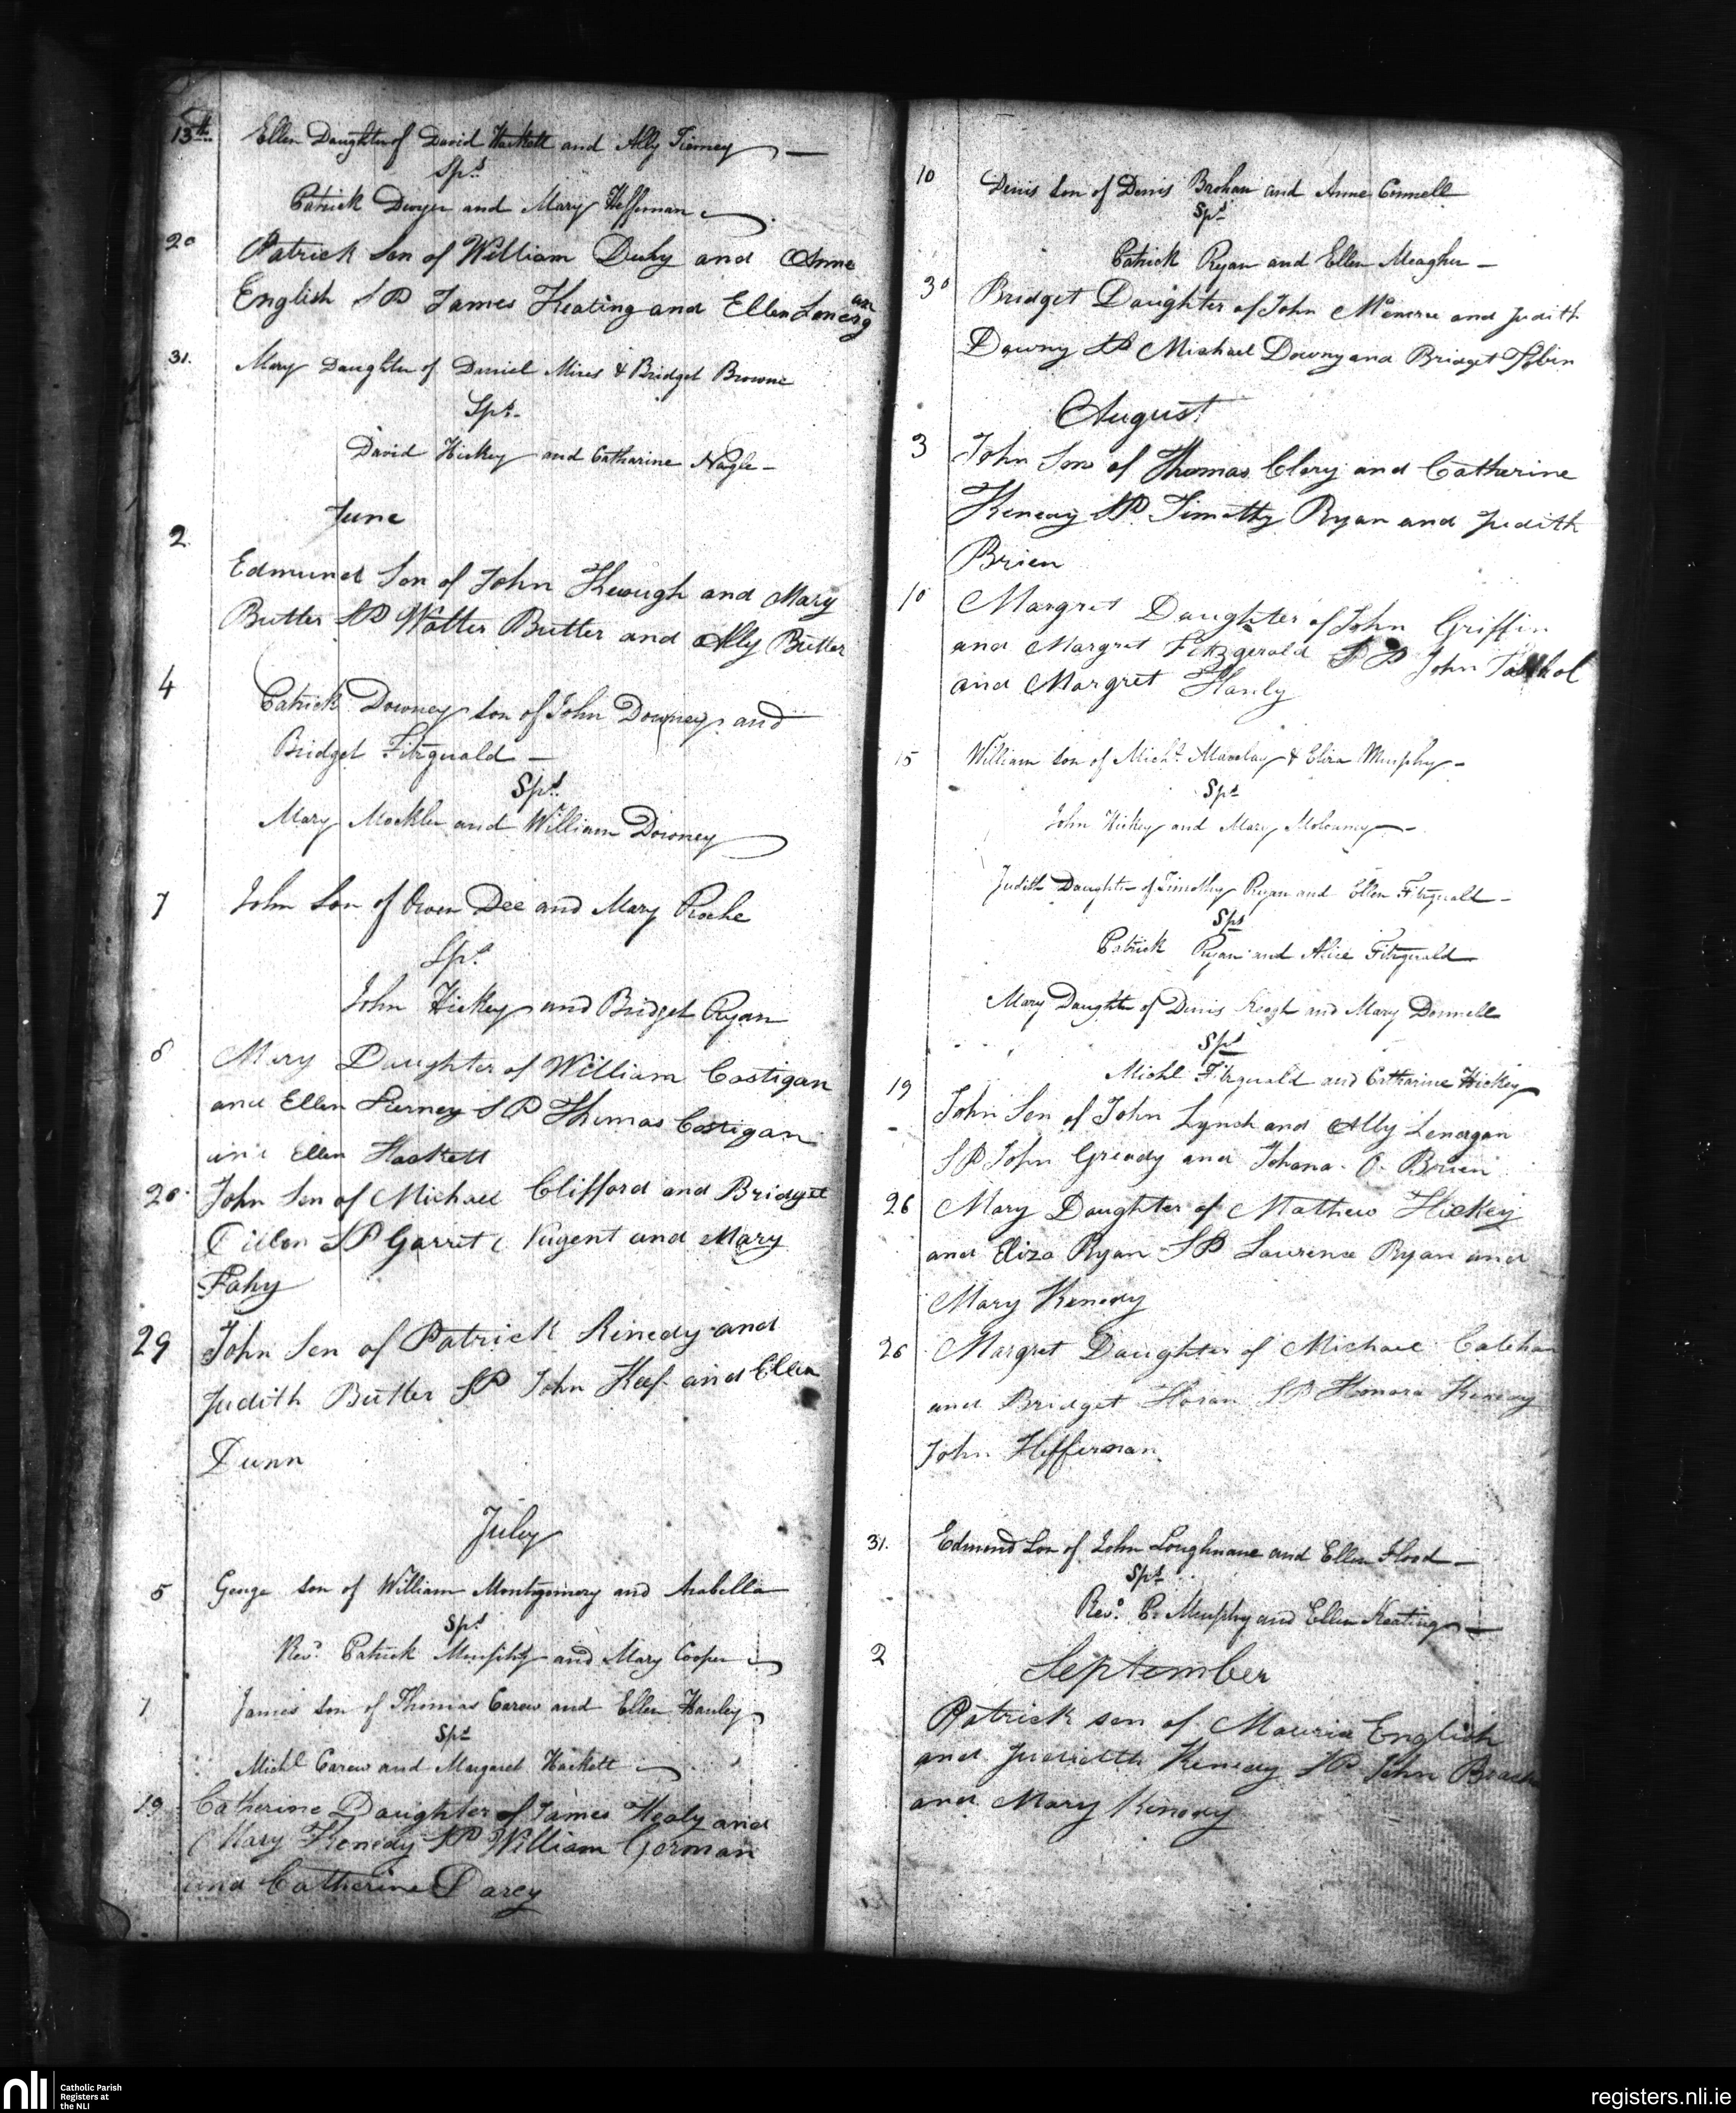 13th Ellen Daughter of David Hackett and Ally Tierney
Sps
Patrick Dwyer and Mary Heffernan
20 Patrick Son of William Duhy and Anne
English SP James Keating and Ellen Lonergan
31. Mary Daughter of Daniel Mires & Bridget Browne
Sps
David Hickey and Catharine Nagle
June
2
Edmund Son of John Keough and Mary
Butler SP Walter Butler and Ally Butler
4 Patrick Downey son of John Downey and
Bridget Fitzgerald
Sps
Mary Mockler and William Downey
7 John Son of Owen Dee and Mary Roche
Sps
John Hickey and Bridget Ryan
8 Mary Daughter of William Costigan
and Ellen SP Thomas Costigan
and Ellen Hackett
20 John Son of Michael Clifford and Bridget
Dillon SP Garrett Nugent and Mary
Fahy
29 John Son of Patrick Kinedy and
Judith Butler SP John Keef and Ellen
Dunn
July
5 George son of William Montgomery and Arabella
Sps
Revd. Patrick Murphy and Mary Cooper
7 James son of Thomas Carew and Ellen Hanley
Sps
Michl Carew and Margaret Hackett
19 Catherine Daughter of James Healy and
Mary Kenedy SP William Gorman
and Catherine Darcy
10 Denis Son of Denis Brohan and Anne Connell
Sps
Patrick Ryan and Ellen Meagher
30 Bridget Daughter of John and Judith
Downy SP Michael Downy and Bridget Tobin
August
3 John Son of Thomas Clery and Catherine
Kenedy SP Timothy Ryan and Judith
Brien
10 Margret Daughter of John Griffin
and Margret Fitzgerald SP John
and Margret Hanly
15 William son of Michl & Eliza Murphy
Sps
John Hickey and Mary Moloney
Judith Daughter of Timothy Ryan and Ellen Fitzgerald
Sps
Patrick Ryan and Alice Fitzgerald
Mary Daughter of Denis Keogh and Mary Donnell
Sps
Michl Fitzgerald and Catharine Hickey
19 John Son of John Lynch and Ally Lenargan
SP John Gready and Johana O Brien
26 Mary Daughter of Mathew Hickey
and Eliza Ryan SP Laurence Ryan and
Mary Kenedy
26 Margret Daughter of Michael Calehan
and Bridget Horan SP Honora Kenedy
John Hefferman
31. Edmund Son of John Loughnane and Ellen Flood
Sps
Revd. P. Murphy and Ellen Keating
2 September
Patrick son of Maurice English
and Judith Kenedy SP John
and Mary Kinedy
nli
Catholic Parish
Registers at
the NLI
registers.nli.ie